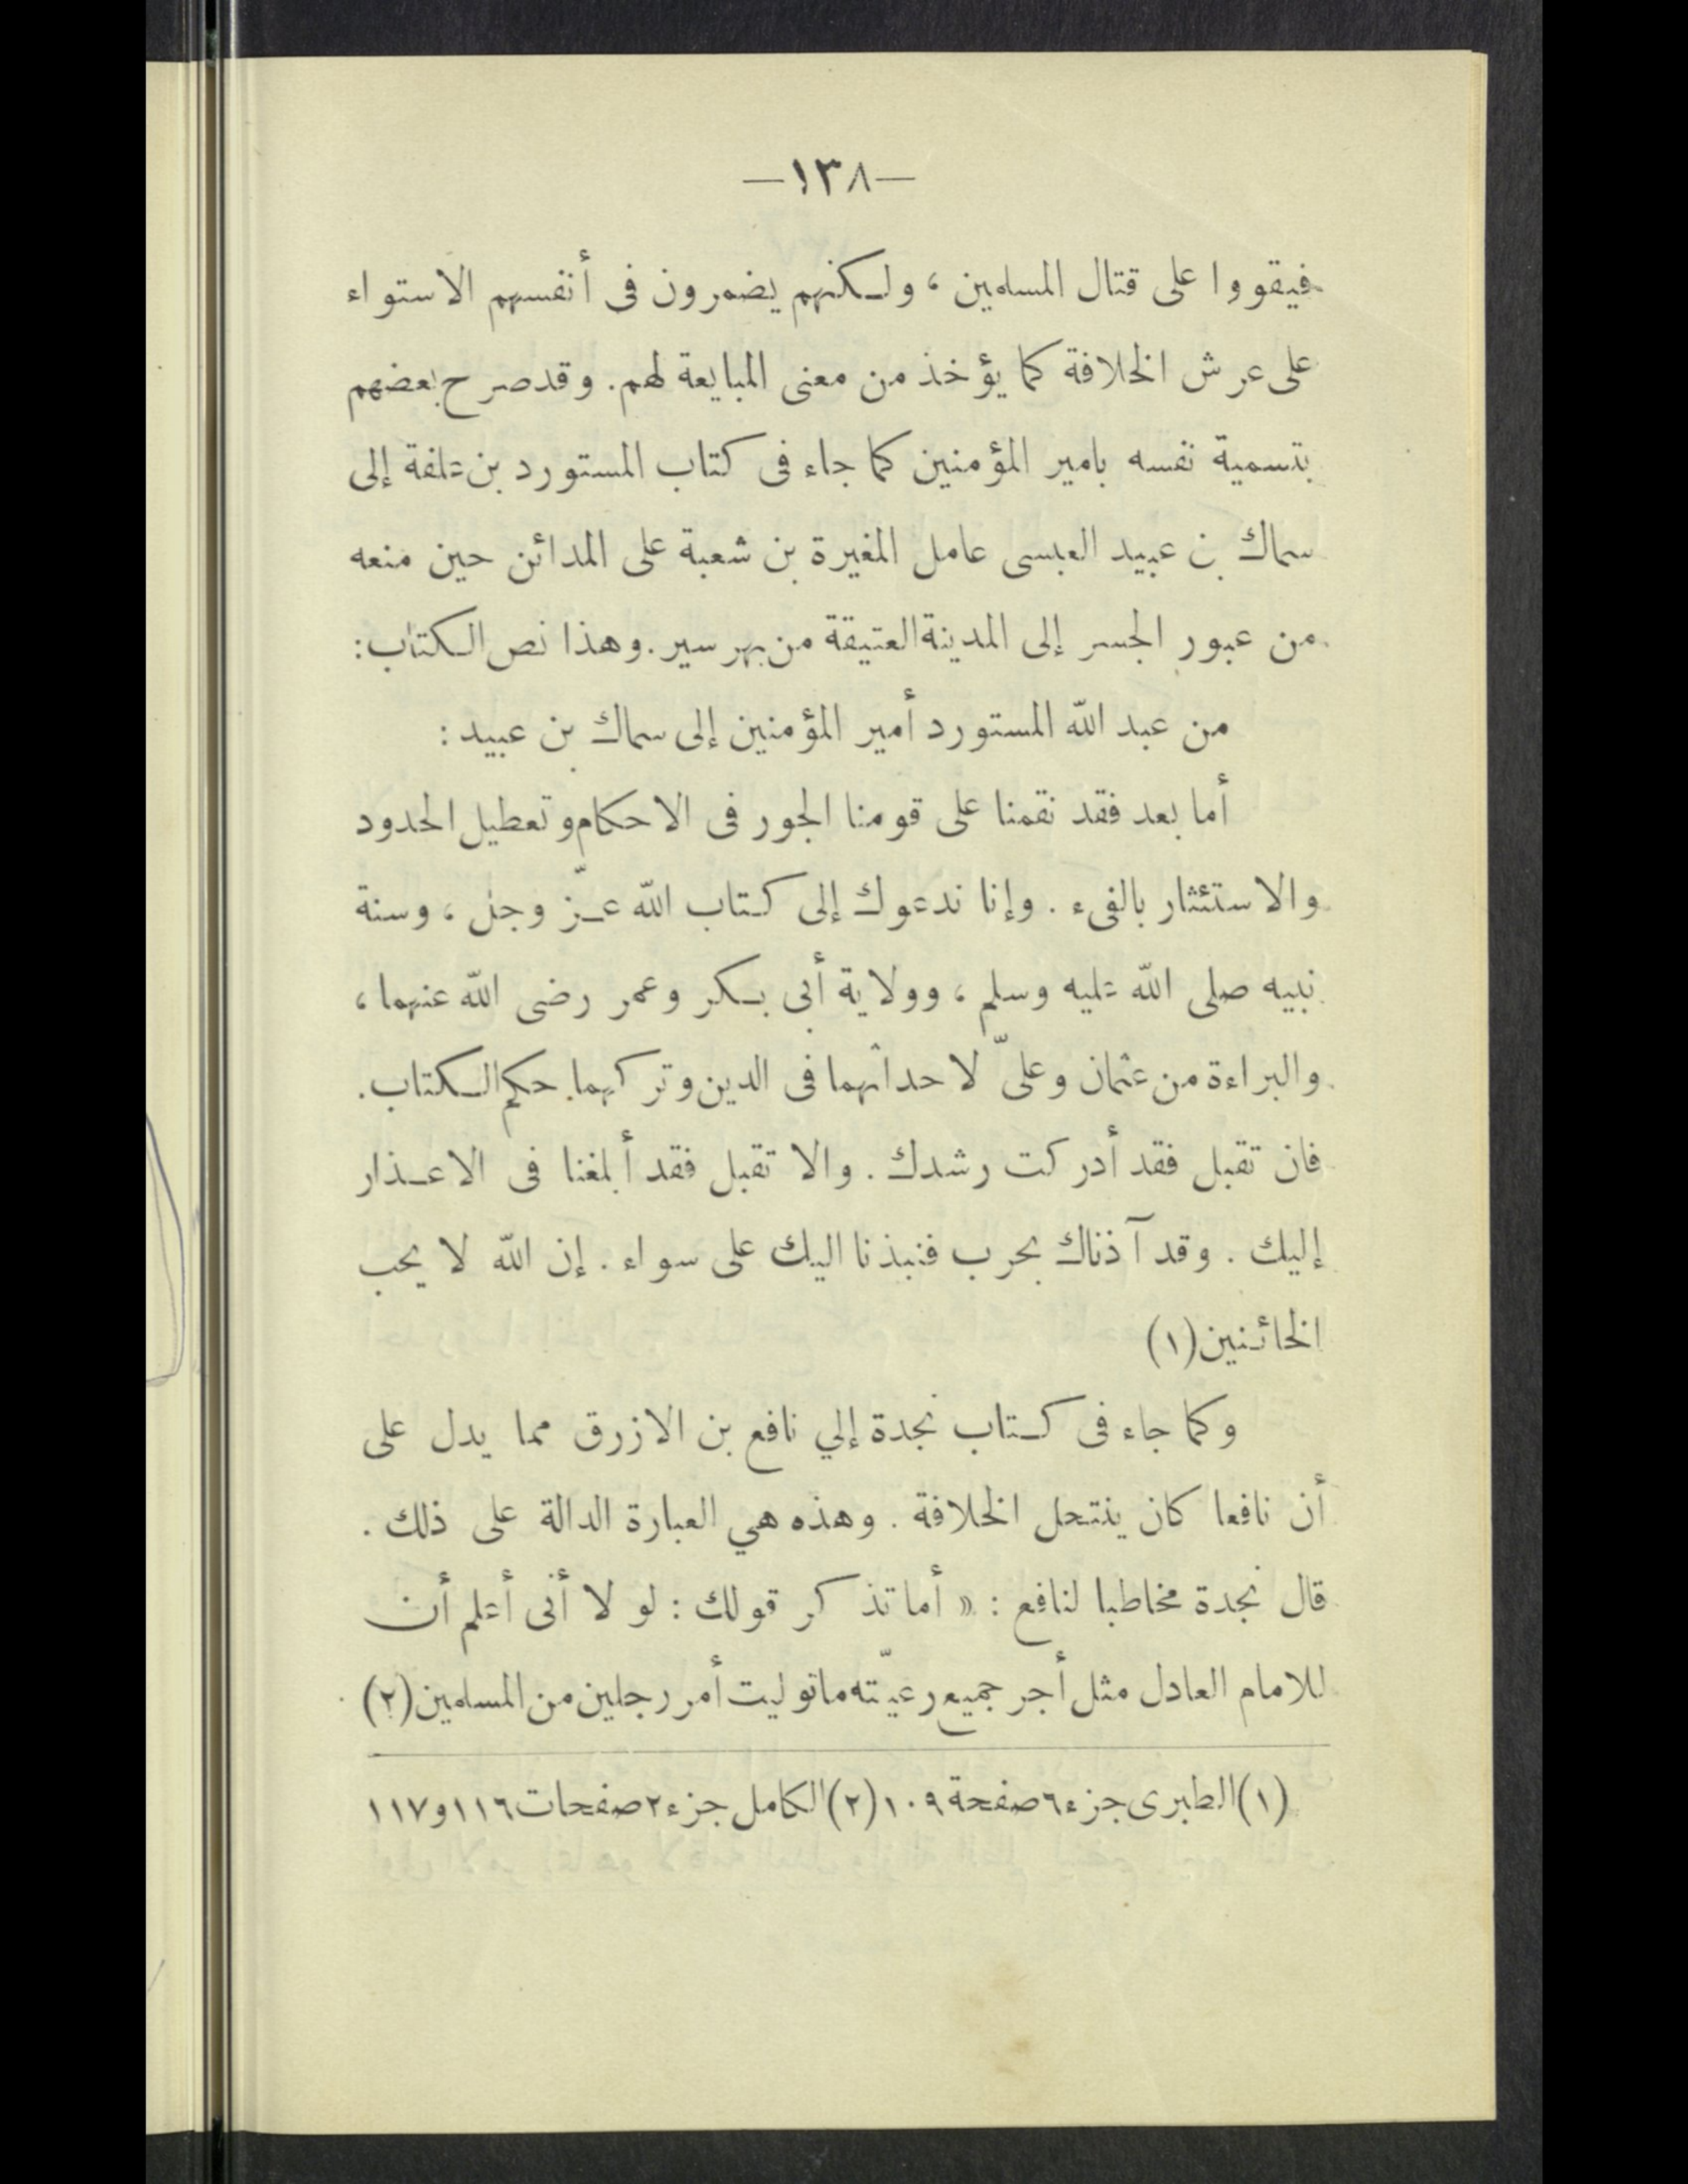 —١٣٨—
فيقووا على قتال المسلمين ، ولكنهم يضمرون فى أنفسهم الاستواء
على عرش الخلافة كما يؤخذ من معنى المبايعة لهم. وقد صرح بعضهم
بتسمية نفسه بامير المؤمنين كما جاء فى كتاب المستورد بن علفة إلى
سماك بن عبيد العبسى عامل المغيرة بن شعبة على المدائن حين منعه
من عبور الجسر إلى المدينة العتيقة من بهرسير. وهذا نص الكتاب:
من عبد الله المستورد أمير المؤمنين إلى سماك بن عبيد :
أما بعد فقد نقمنا على قومنا الجور فى الاحكام وتعطيل الحدود
والاستئثار بالفىء . وإنا ندعوك إلى كتاب الله عزّ وجل ، وسنة
نبيه صلى الله عليه وسلم ، وولاية أبى بكر وعمر رضى الله عنهما ،
والبراءة من عثمان وعلىّ لاحداثهما فى الدين وتركهما حكم الكتاب.
فان تقبل فقد أدركت رشدك . والا تقبل فقد أبلغنا فى الاعذار
إليك . وقد آذناك بحرب فنبذنا اليك على سواء . إن الله لا يحب
الخائنين (١)
وكما جاء فى كتاب نجدة إلي نافع بن الازرق مما يدل على
أن نافعا كان ينتحل الخلافة . وهذه هي العبارة الدالة على ذلك .
قال نجدة مخاطبا لنافع : « أما تذكر قولك : لو لا أنى أعلم أن
للامام العادل مثل أجر جميع رعيّته ما توليت أمر رجلين من المسلمين (٢)
(١) الطبرى جزء ٦ صفحة ١٠٩ (٢) الكامل جزء ٢ صفحات ١١٦ و١١٧